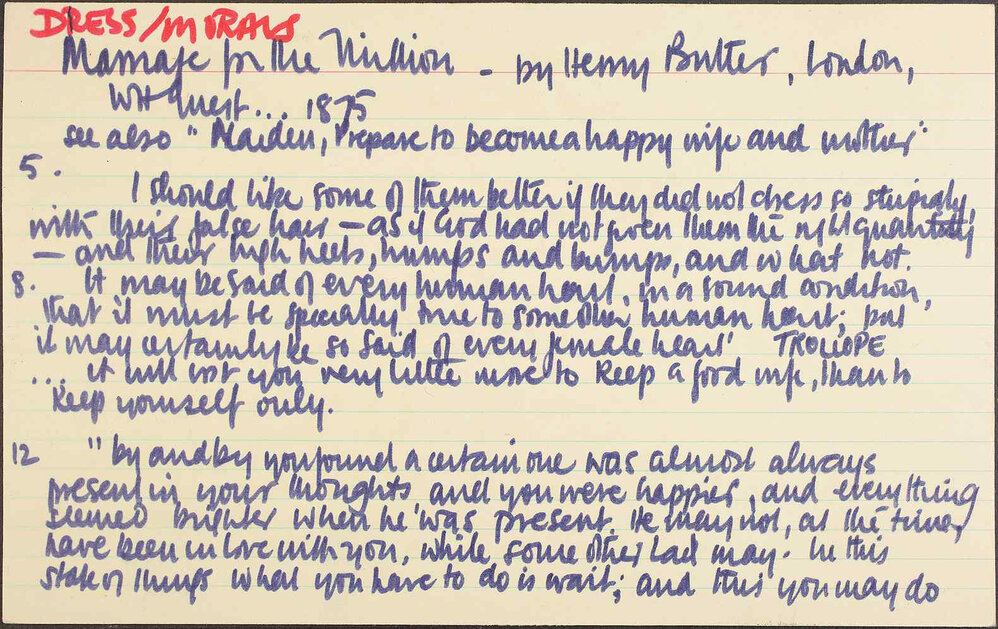 DRESS/MORALS
Marriage for the Million - by Henry Butter, London,
WH Guest... 1875
see also "Maiden, Prepare to become a happy wife and mother"
5.
I should like some of them better if they did not dress so stupidly,
with their false hair — as if God had not given them the right quantity
— and their high heels, humps and bumps, and what not.
8. It may be said of every human heart, in a sound condition,
that it must be specially true to some other human heart; but
it may certainly be so said of every female heart' TROLLOPE
... it will cost you very little more to keep a good wife, than to
keep yourself only.
12 "by and by you found a certain one was almost always
present in your thoughts and you were happier, and everything
seemed brighter when he was present. He may not, at the time,
have been in love with you, while some other lad may. In this
state of things what you have to do is wait; and this you may do